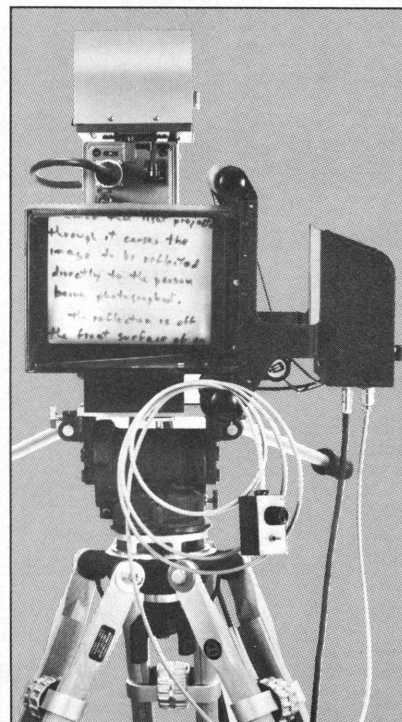 through it causes the
image to be reflected
directly to the person
being photographed.
the reflection is off
the front surface of